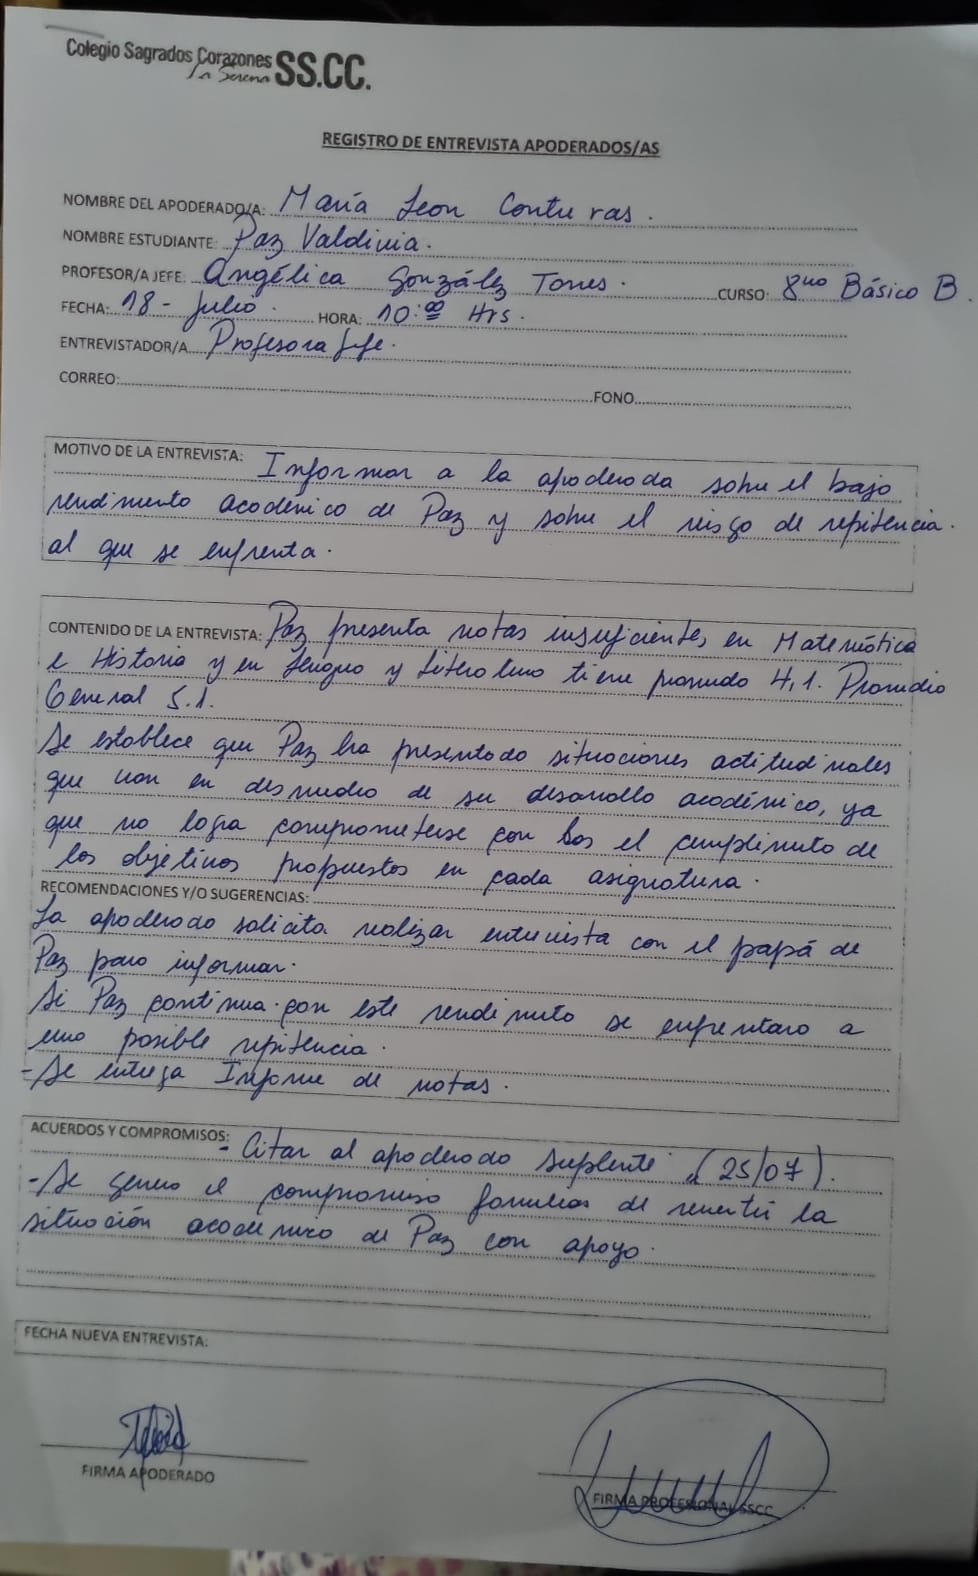 Colegio Sagrados Corazones SS.CC.
La Serena
REGISTRO DE ENTREVISTA APODERADOS/AS
NOMBRE DEL APODERADO/A: María Leon Contreras.
NOMBRE ESTUDIANTE: Paz Valdivia.
PROFESOR/A JEFE: Angélica González Torres. CURSO: 8vo Básico B.
FECHA: 18 - Julio. HORA: 10:00 Hrs.
ENTREVISTADOR/A Profesora Jefe.
CORREO: FONO
MOTIVO DE LA ENTREVISTA: Informar a la apoderada sobre el bajo
rendimiento académico de Paz y sobre el riesgo de repitencia.
al que se enfrenta.
CONTENIDO DE LA ENTREVISTA: Paz presenta notas insuficientes, en Matemática
e Historia y en Lengua y Literatura tiene promedio 4,1. Promedio
General 5.1.
Se establece que Paz ha presentado situaciones actitudinales
que van en desmedro de su desarrollo académico, ya
que no logra comprometerse con los el cumplimiento de
los objetivos propuestos en cada asignatura.
RECOMENDACIONES Y/O SUGERENCIAS:
La apoderada solicita realizar entrevista con el papá de
Paz para informar.
Si Paz continua con este rendimiento se enfrentara a
una posible repitencia.
- Se entrega Informe de notas.
ACUERDOS Y COMPROMISOS: - Citar al apoderado suplente (25/07).
- Se genera el compromiso familiar de revertir la
situación académica de Paz con apoyo.
FECHA NUEVA ENTREVISTA:
FIRMA APODERADO
FIRMA PROFESIONAL SSCC